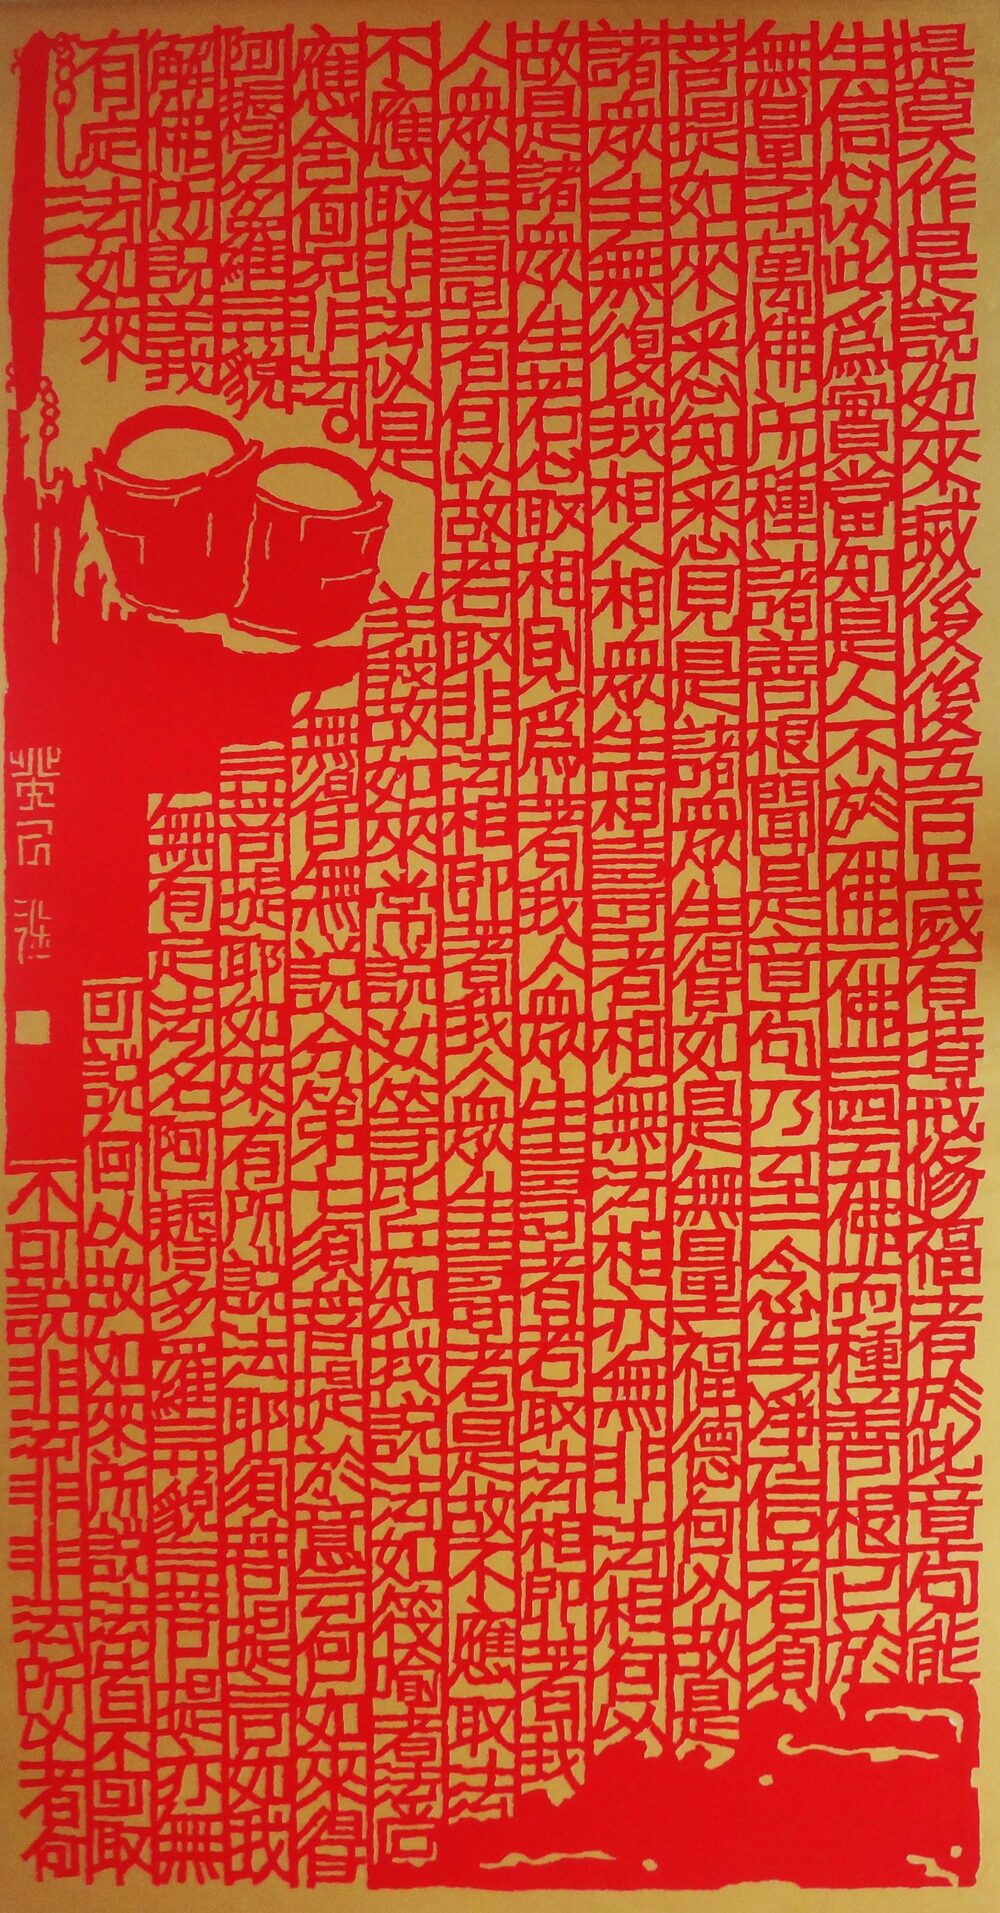 提莫作是說如來滅後後五百歲有持戒修福者於此章句能
生信心以此爲實當知是人不於一佛二佛三四五佛而種善根已於
無量千萬佛所種諸善根聞是章句乃至一念生淨信者須
菩提如來悉知悉見是諸眾生得如是無量福德何以故是
諸眾生無復我相人相眾生相壽者相無法相亦無非法相何以
故是諸眾生若心取相則爲著我人眾生壽者若取法相即著我
人眾生壽者何以故若取非法相即著我人眾生壽者是故不應取法
不應取非法以是義故如來常說汝等比丘知我說法如筏喻者法尚
應舍何況非法。無得無說分第七須菩提於意云何如來得
阿耨多羅三藐三菩提耶如來有所說法耶須菩提言如我
解佛所說義無有定法名阿耨多羅三藐三菩提亦無
有定法如來可說何以故如來所說法皆不可取
不可說非法非非法所以者何